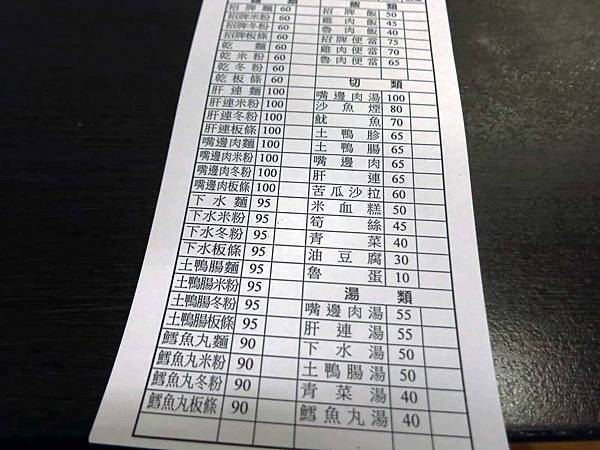 類
招牌麵 60
招牌米粉 60
招牌冬粉 60
招牌板條 60
乾麵 60
乾米粉 60
乾冬粉 60
乾板條 60
肝連麵 100
肝連米粉 100
肝連冬粉 100
肝連板條 100
嘴邊肉麵 100
嘴邊肉米粉 100
嘴邊肉冬粉 100
嘴邊肉板條 100
下水麵 95
下水米粉 95
下水冬粉 95
下水板條 95
土鴨腸麵 95
土鴨腸米粉 95
土鴨腸冬粉 95
土鴨腸板條 95
鱈魚丸麵 90
鱈魚丸米粉 90
鱈魚丸冬粉 90
鱈魚丸板條 90
飯類
招牌飯 50
雞肉飯 45
魯肉飯 40
招牌便當 75
雞肉便當 70
魯肉便當 60
切類
嘴邊肉湯 100
沙魚煙 80
魷魚 70
土鴨胗 65
土鴨腸 65
嘴邊肉 65
肝連 65
苦瓜沙拉 60
米血糕 50
筍絲 45
青菜 40
油豆腐 30
魯蛋 10
湯類
嘴邊肉湯 55
肝連湯 55
下水湯 50
土鴨腸湯 50
青菜湯 40
鱈魚丸湯 40